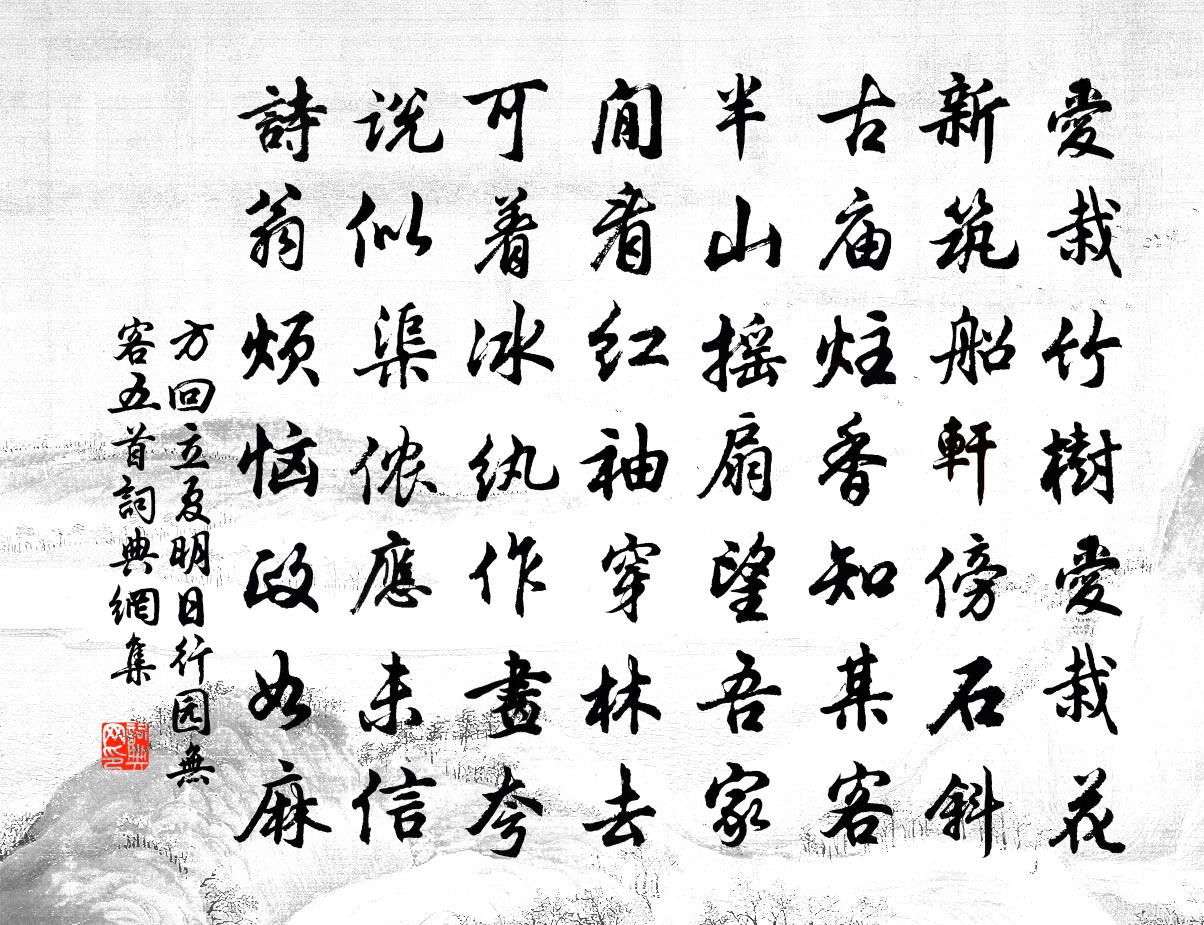 愛栽竹樹愛栽花
新筑船軒傍石斜
古庙炷香知某客
半山摇扇望吾家
閒看红袖穿林去
可着冰纨作畫夸
説似渠侬應未信
詩翁烦恼政如麻
方回立夏明日行园無
客五首詞典網集